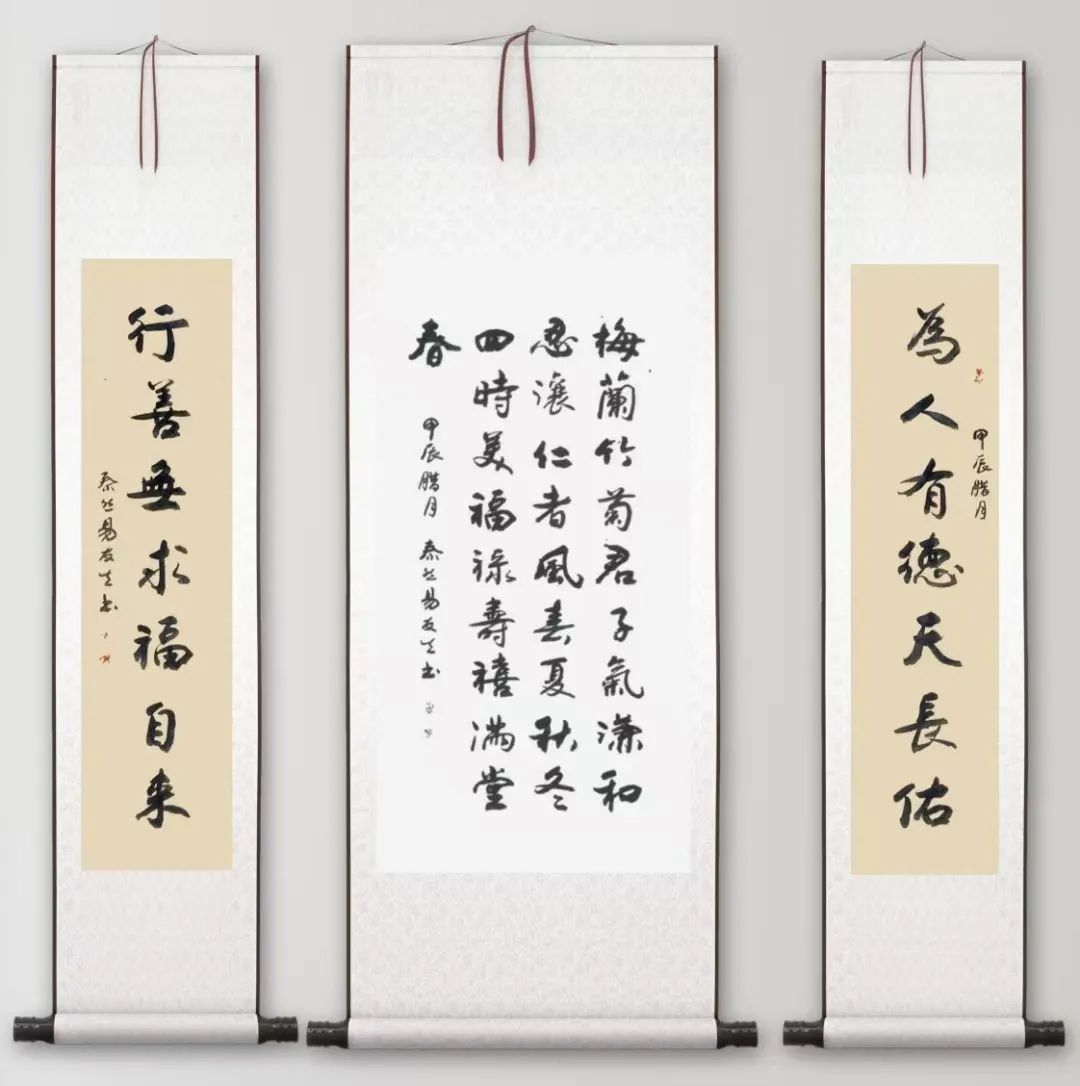 為人有德天長佑
甲辰腊月
梅蘭竹菊君子氣谦和
忍讓仁者風春夏秋冬
四時美福禄壽禧满堂
春
甲辰腊月 易友生书
行善無求福自来
易友生书